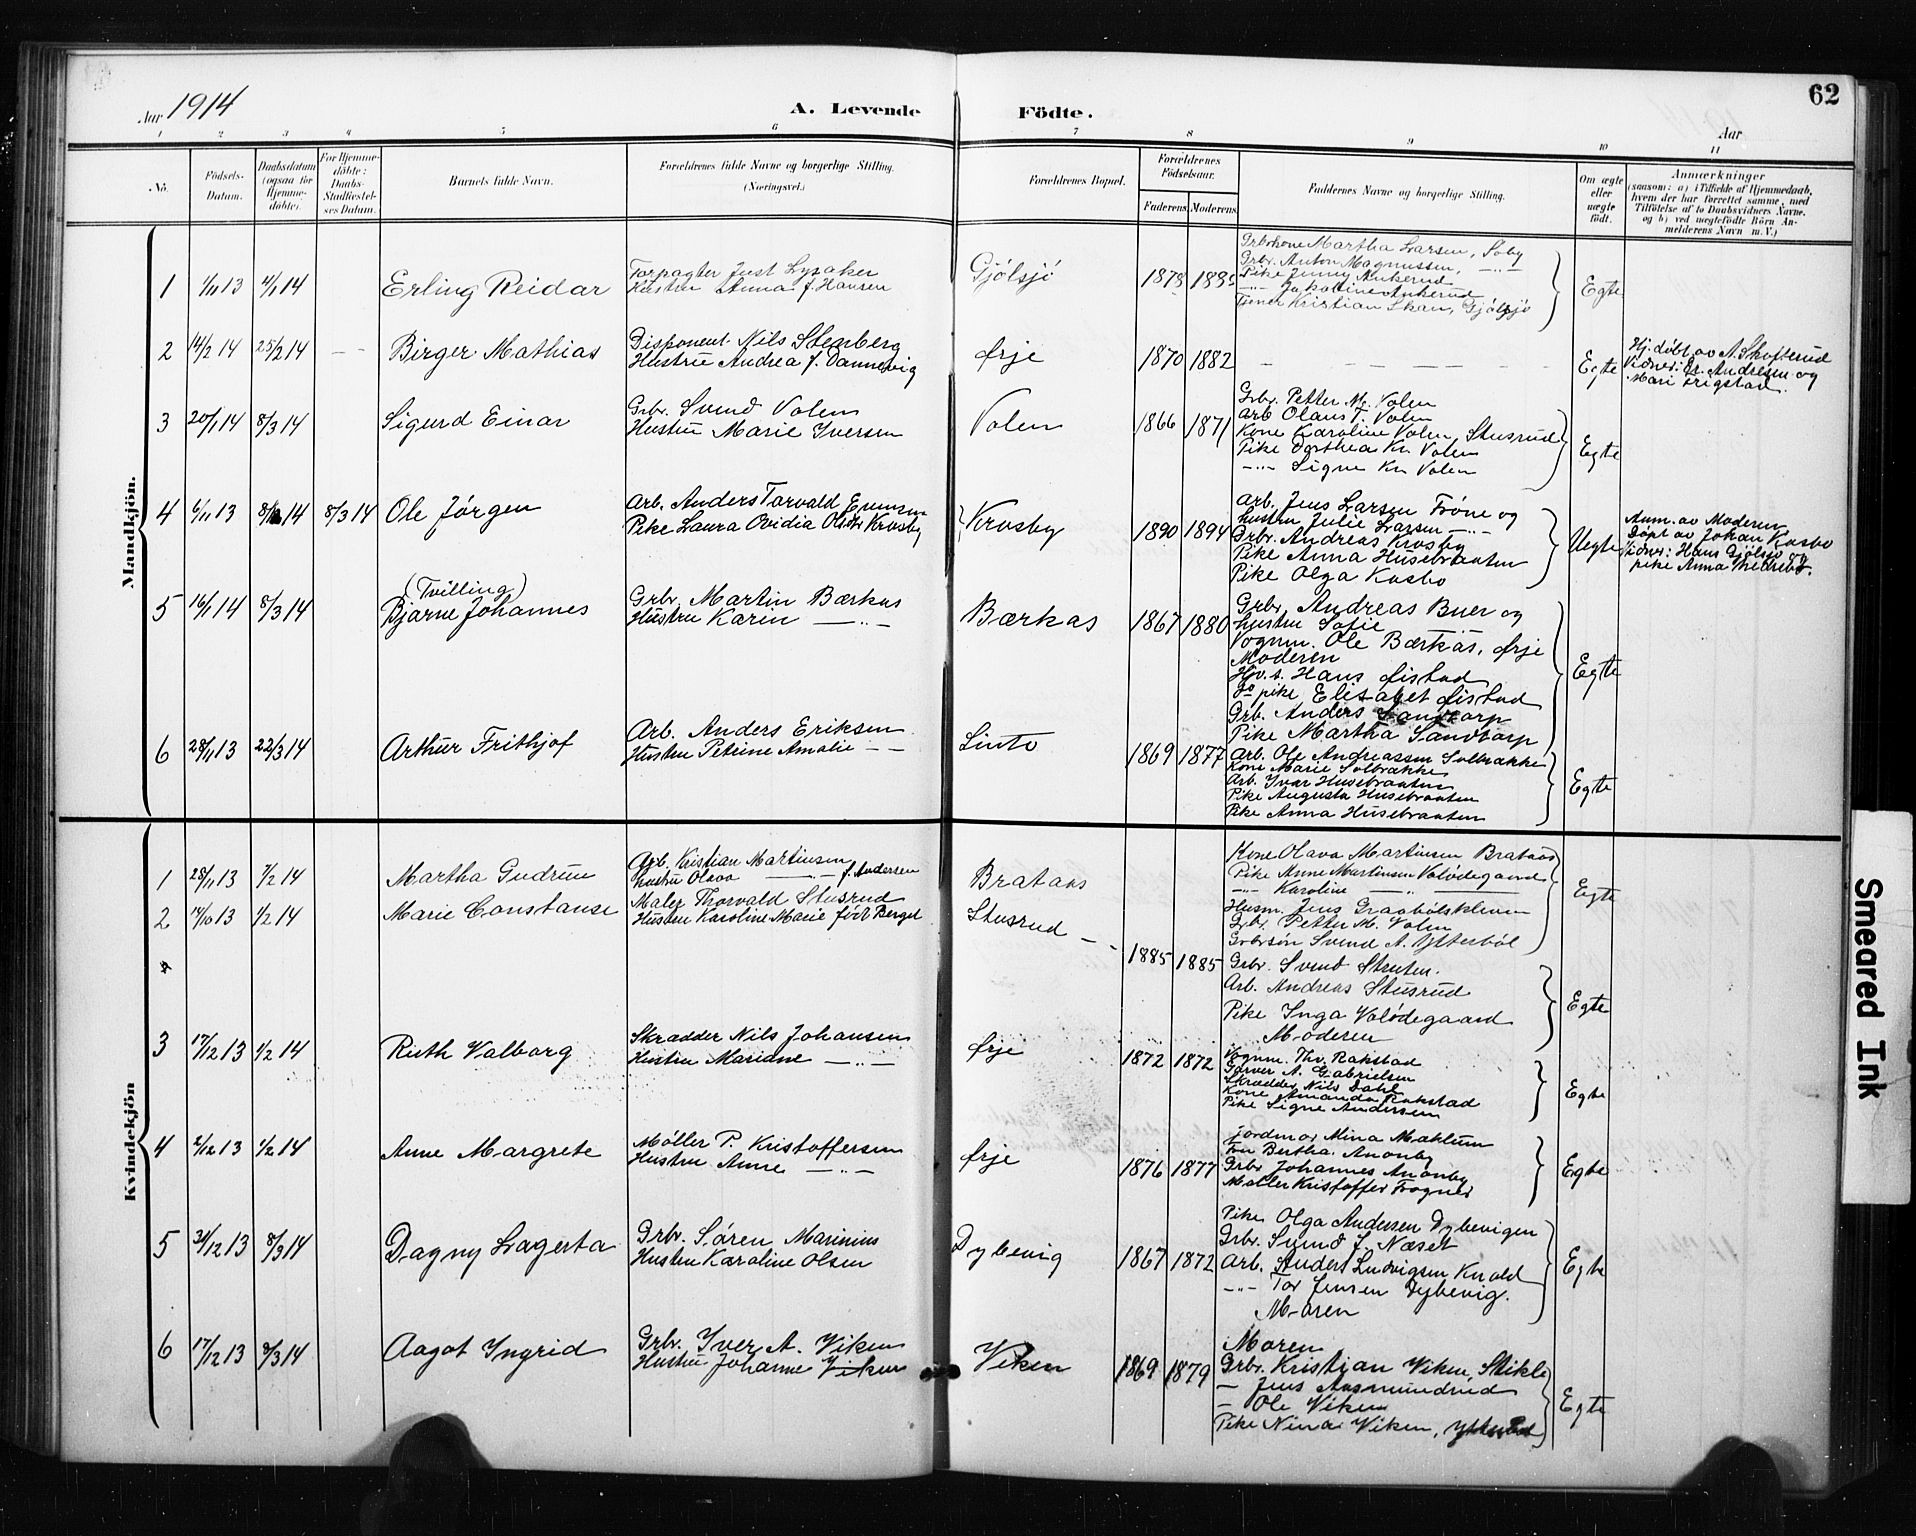 62
Aar 1914
A. Levende Födte.
Aar
1 2 3 4 5 6 7 8 9 10 11
No.
Födsels-
Datum.
Daabsdatum
(ogsaa for
Hjemme-
döbte).
For Hjemme-
döbte:
Daabs-
Stadfestel-
ses Datum.
Barnets fulde Navn.
Forældrenes fulde Navne og borgerlige Stilling.
(Næringsvei.)
Forældrenes Bopæl.
Forældrenes
Födselsaar.
Faderens. Moderens.
Faddernes Navne og borgerlige Stilling.
Om ægte
eller
uægte
födt.
Anmærkninger
(saasom: a) i Tilfælde af Hjemmedaab,
hvem der har forrettet samme, med
Tilföielse af to Daabsvidners Navne.
og b) ved uægtefödte Börn An-
melderens Navn m. V.)
Mandkjön.
1 1/11 13 4/1 14 Erling Reidar
Forpagter Just Lysaker
Hustru Anna f. Hansen
Gjølsjø 1878
Grbrkone Martha Larsen, Søby
Grbr. Anton Magnussen, -"-
Pike Jenny Ankerud
-"- Ankerud
Kristian Skau, Gjølsjø
Egte
2 14/2 14 25/2 14 - - Birger Mathias
Disponent Nils Stenberg
Hustru Andrea f. Dannevig
Ørje 1870 1882
- - - - -
Egte
Hj. døbt av A. Skofterud
Vidner: Dr. Andresen og
Mari Frigstad.
3 20/1 14 8/3 14 Sigurd Einar
Grbr. Svend Volen
Hustru Marie Iversen
Volen 1866 1871
Grbr. Petter M. Volen
Arb. Olaus T. Volen
Kone Karoline Volen, Stusrud
Pike Dorthea Kr. Volen
-"- Signe Kr. Volen
Egte
4 6/11 13 14 8/3 14 Ole Jørgen
Arb. Anders Torvald
Pike Laura Ovidia Krosby
Krosby 1890 1894
Arb. Jens Larsen Trøne og
hustru Julie Larsen -"-
Grbr. Andreas Krosby
Pike Anna Husebraaten
Pike Olga Kasbo
Uegte
Anm. av Moderen
Døpt av Johan Kasbo
Vidner: Hans Gjølsjø og
pike Anna
5 16/1 14 8/3 14 (Tvilling)
Bjarne Johannes
Grbr. Martin Bærkas
Hustru Karen -"-
Bærkas 1867 1880
Grbr. Andreas Buer og
hustru Sofie -"-
Vognm. Ole Bærkas, Ørje
Moderen
Hans Øistad
pike Elisabet Øistad
Grb. Anders Sandtorp
Pike Martha Sandtorp
Egte
6 28/11 13 22/3 14 Arthur Frithjof
Arb. Anders Eriksen
Hustru Petrine Amalie - -
Linto 1869 1877
Arb. Ole Andreassen Solbrække
Kone Marie Solbrække
Arb. Ivar Husebraaten
Pike Augusta Husebraaten
Pike Anna Husebraaten
Egte
Kvindekjön
1 28/11 13 1/2 14 Martha Gudrun
Arb. Kristian Martinsen
hustru Olava -"- f. Andersen
Brataas
Kone Olava Martinsen Brataas
Pike Anne Martinsen Volødegaard
-"- Karoline -"-
Husm. Jens Graabølskleven
Grbr. Petter M. Volen
Grbrsøn Svend A. Ytterbøl
Egte
2 13 1/2 14 Marie Constanse
Maler Thorvald Stusrud
Hustru Karoline Marie født Berget
Stusrud - - 1885 1885
Grbr. Svend Struten.
Arb. Andreas Stusrud
Pike Inga Volødegaard
Moderen
Egte
3 17/12 13 1/2 14 Ruth Valborg
Skrædder Nils Johansen
Hustru Mariane -"-
Ørje 1872 1872
Vognm. Thv. Rakstad
Garver A. Gabrielsen
Skrædder Nils Dahl
Kone Amanda Rakstad
Pike Signe Andersen
Egte
4 2/12 13 1/2 14 Anne Margrete
Møller P. Kristoffersen
Hustru Anne -"-
Ørje 1876 1877
Jordmor Mina Moklum
Fru Bertha Anonby
Grbr Johannes Anonby
Møller Kristoffer Frogner
Egte
5 31/12 13 8/3 14 Dagny Lagerta
Grbr. Søren Marinius
Hustru Karoline Olsen
Dybevig 1867 1872
Pike Olga Andersen Dybevigen
Grbr. Svend J. Næset
Arb. Anders Ludvigsen Knold
-"- Tor Jensen Dybevig.
Moren
Egte
6 17/12 13 8/3 14 Aagot Ingrid
Grbr. Iver A. Viken
Hustru Johanne Viken
Viken 1869 1879
Moren
Grbr. Kristian Viken, Stikle
- Jens Aasmundrud
- Ole Viken
Pike Nina Viken,
Egte
Smeared Ink